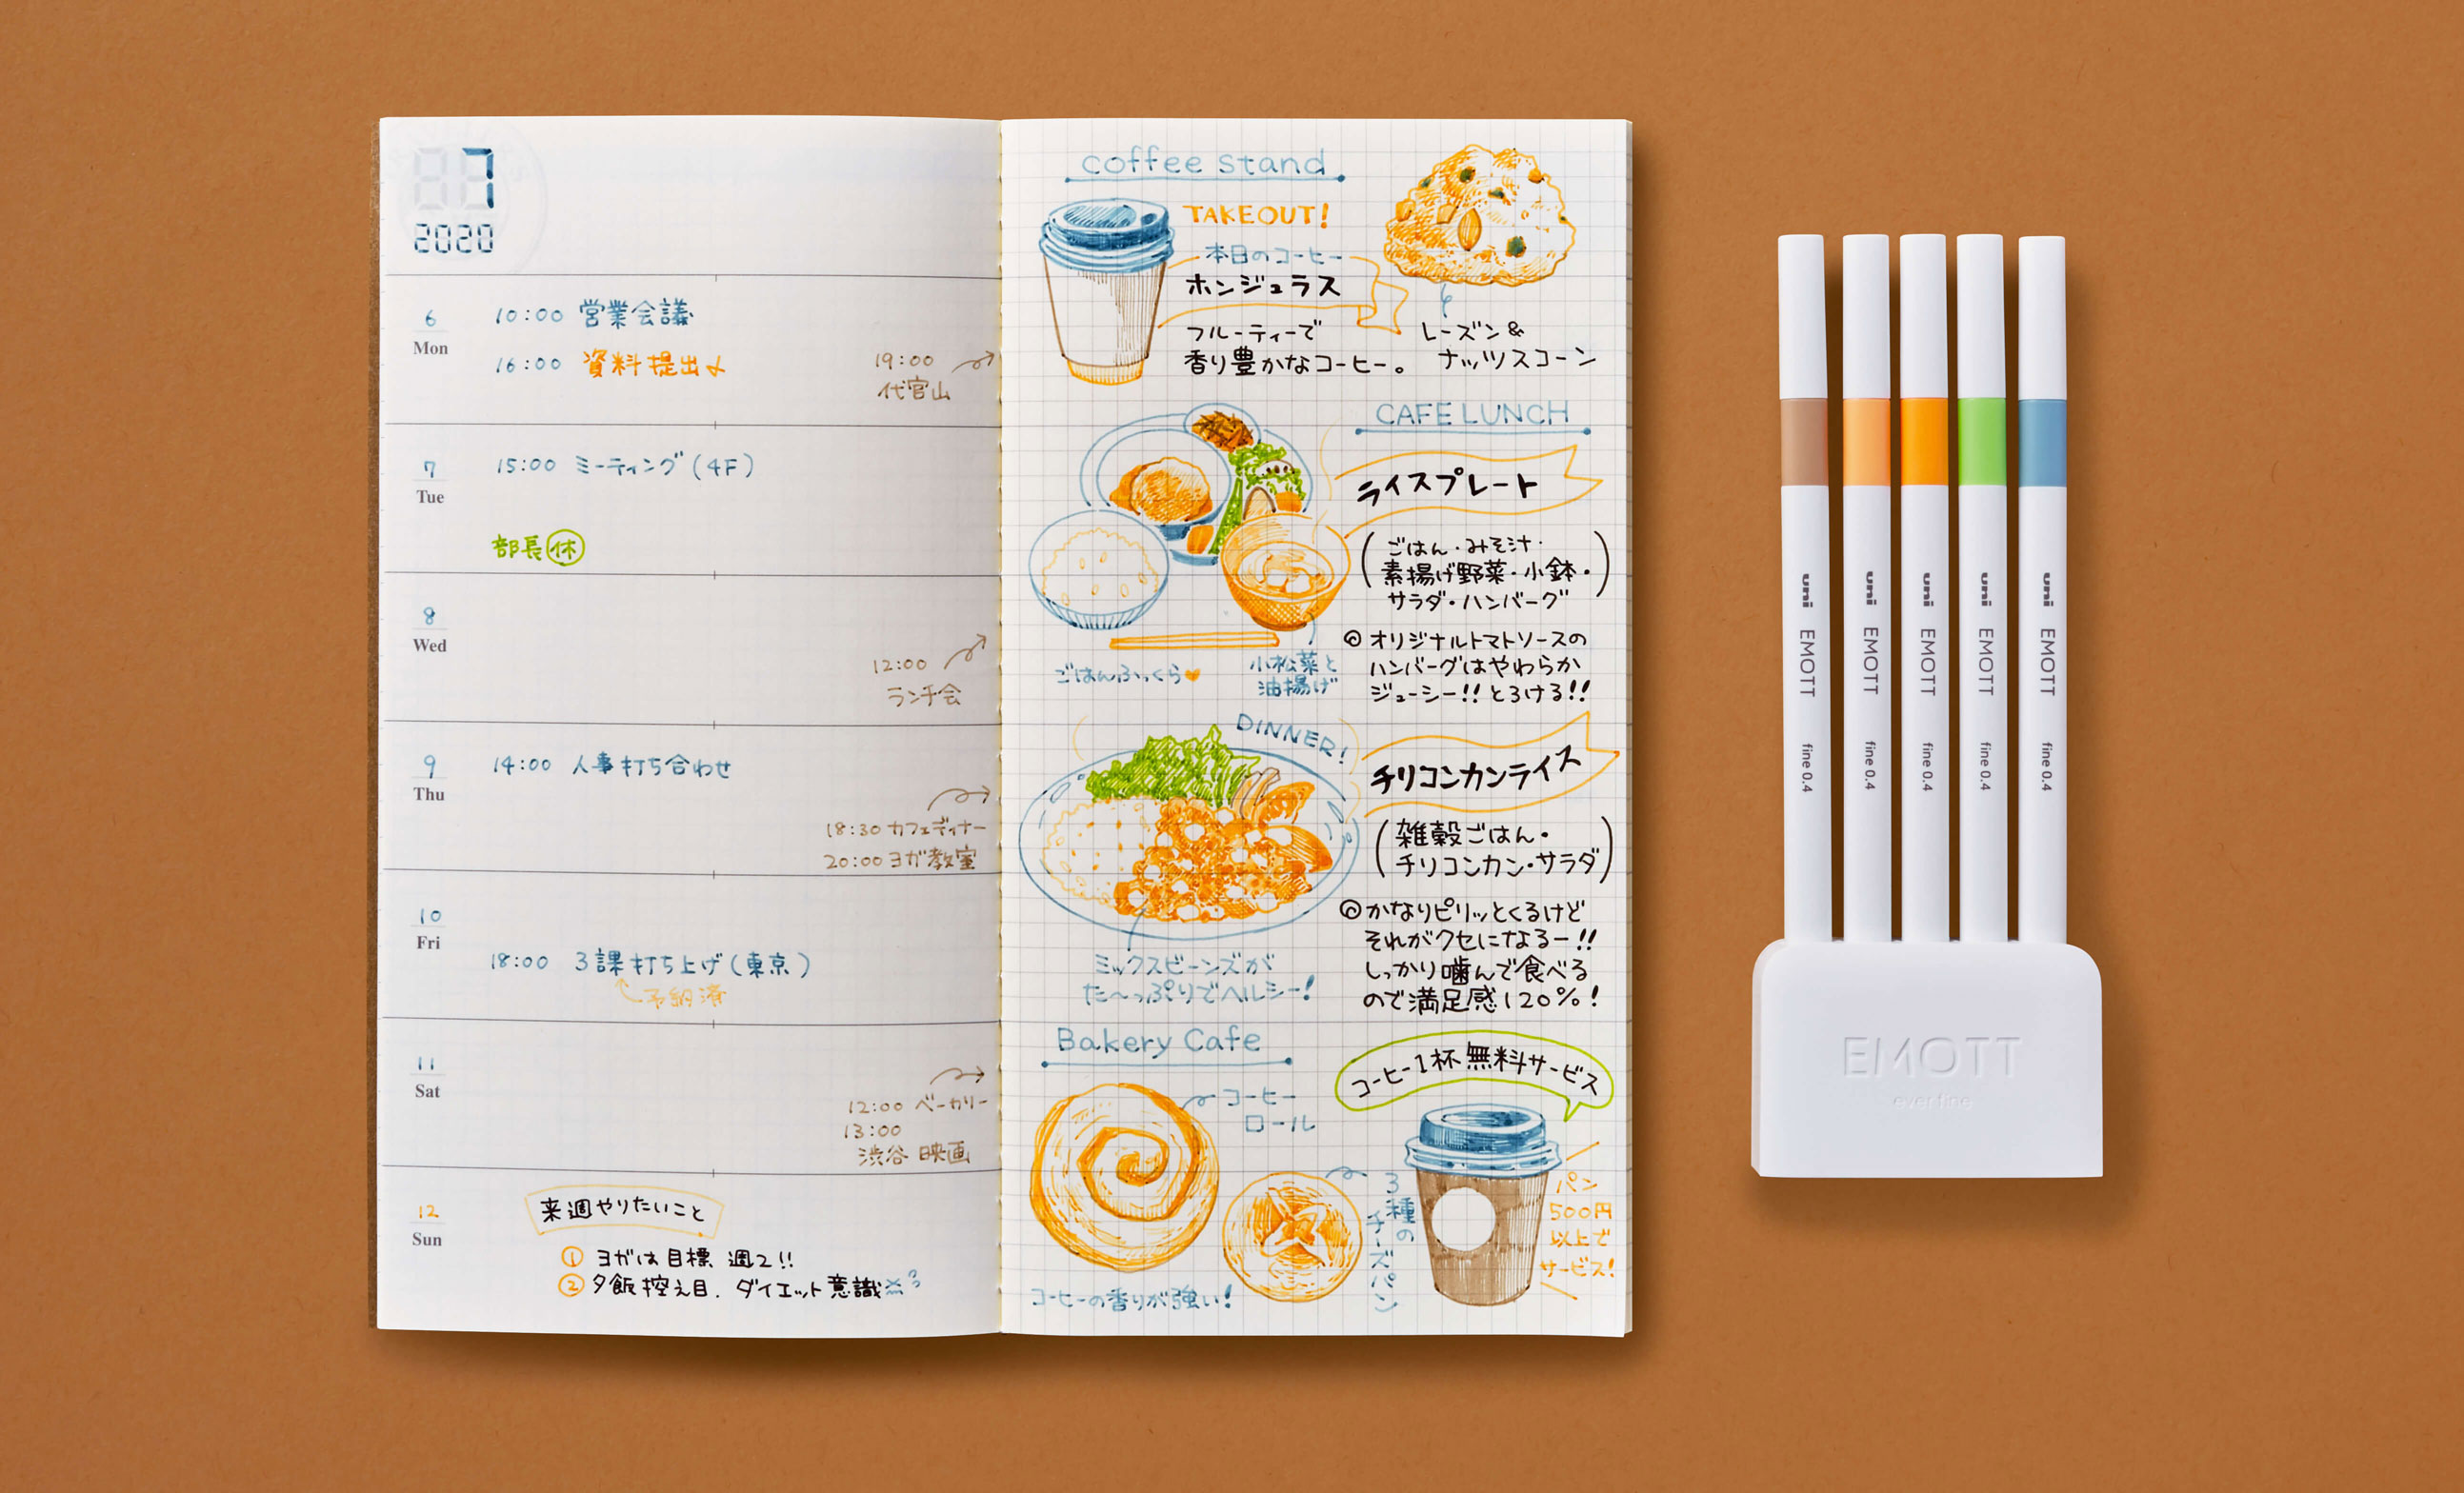 7
2020
6
Mon
10:00 営業会議
16:00 資料提出
19:00
代官山
7
Tue
15:00 ミーティング(4F)
部長休
8
Wed
12:00
ランチ会
9
Thu
14:00 人事打ち合わせ
18:30 カフェディナー
20:00 ヨガ教室
10
Fri
18:00 3課打ち上げ(東京)
予納済
11
Sat
12:00 ベーカリー
13:00
渋谷 映画
12
Sun
来週やりたいこと
① ヨガは目標、週2!!
② 夕飯控え目、ダイエット意識
coffee stand
TAKEOUT!
本日のコーヒー
ホンジュラス
フルーティーで
香り豊かなコーヒー。
レーズン&
ナッツスコーン
CAFE LUNCH
ライスプレート
(ごはん・みそ汁・
素揚げ野菜・小鉢・
サラダ・ハンバーグ)
ごはんふっくら
小松菜と
油揚げ
◎オリジナルトマトソースの
ハンバーグはやわらか
ジューシー!!とろける!!
DINNER!
チリコンカンライス
(雑穀ごはん・
チリコンカン・サラダ)
◎かなりピリッとくるけど
それがクセになるー!!
しっかり噛んで食べる
ので満足感120%!
ミックスビーンズが
た〜っぷりでヘルシー!
Bakery Cafe
コーヒー
ロール
コーヒーの香りが強い!
3種の
チーズパン
コーヒー1杯無料サービス
パン
500円
以上で
サービス!
uni EMOTT fine 0.4
uni EMOTT fine 0.4
uni EMOTT fine 0.4
uni EMOTT fine 0.4
uni EMOTT fine 0.4
EMOTT
ever fine